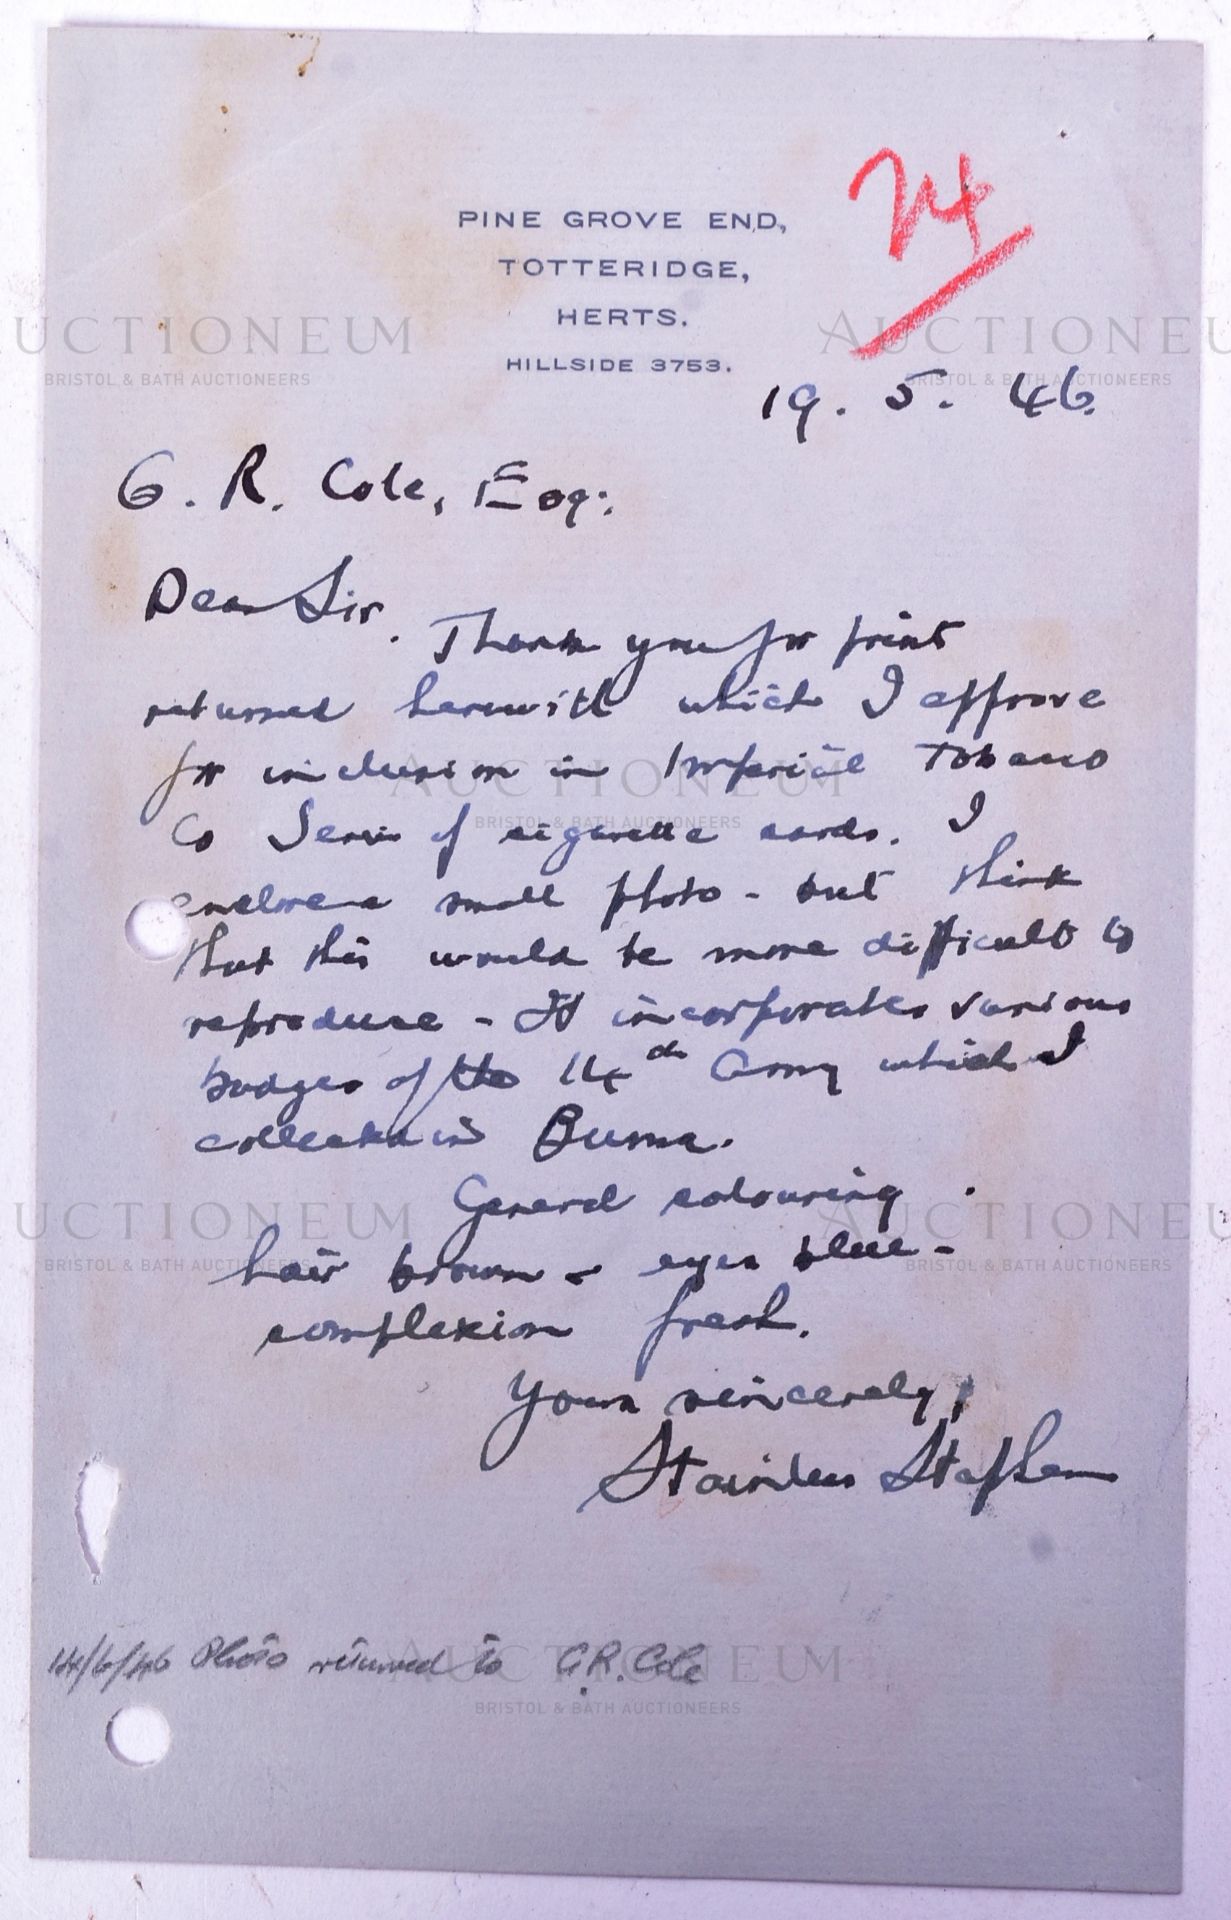 PINE GROVE END,
TOTTERIDGE,
HERTS.
HILLSIDE 3753.
24
19. 5. 46.
G. R. Cole, Esq:.
Dear Sir.
Thank you for print
returned herewith which I approve
for inclusion in Imperial Tobacco
Co Series of cigarette cards. I
enclose a small photo - but think
that this would be more difficult to
reproduce - It incorporates various
badges of the 14th Army which I
collected in Burma.
General colouring
hair brown - eyes blue -
complexion fresh.
Yours sincerely,
Stainless Stephen
14/6/46 Photo returned to G.R. Cole
AUCTIONEUM
BRISTOL & BATH AUCTIONEERS